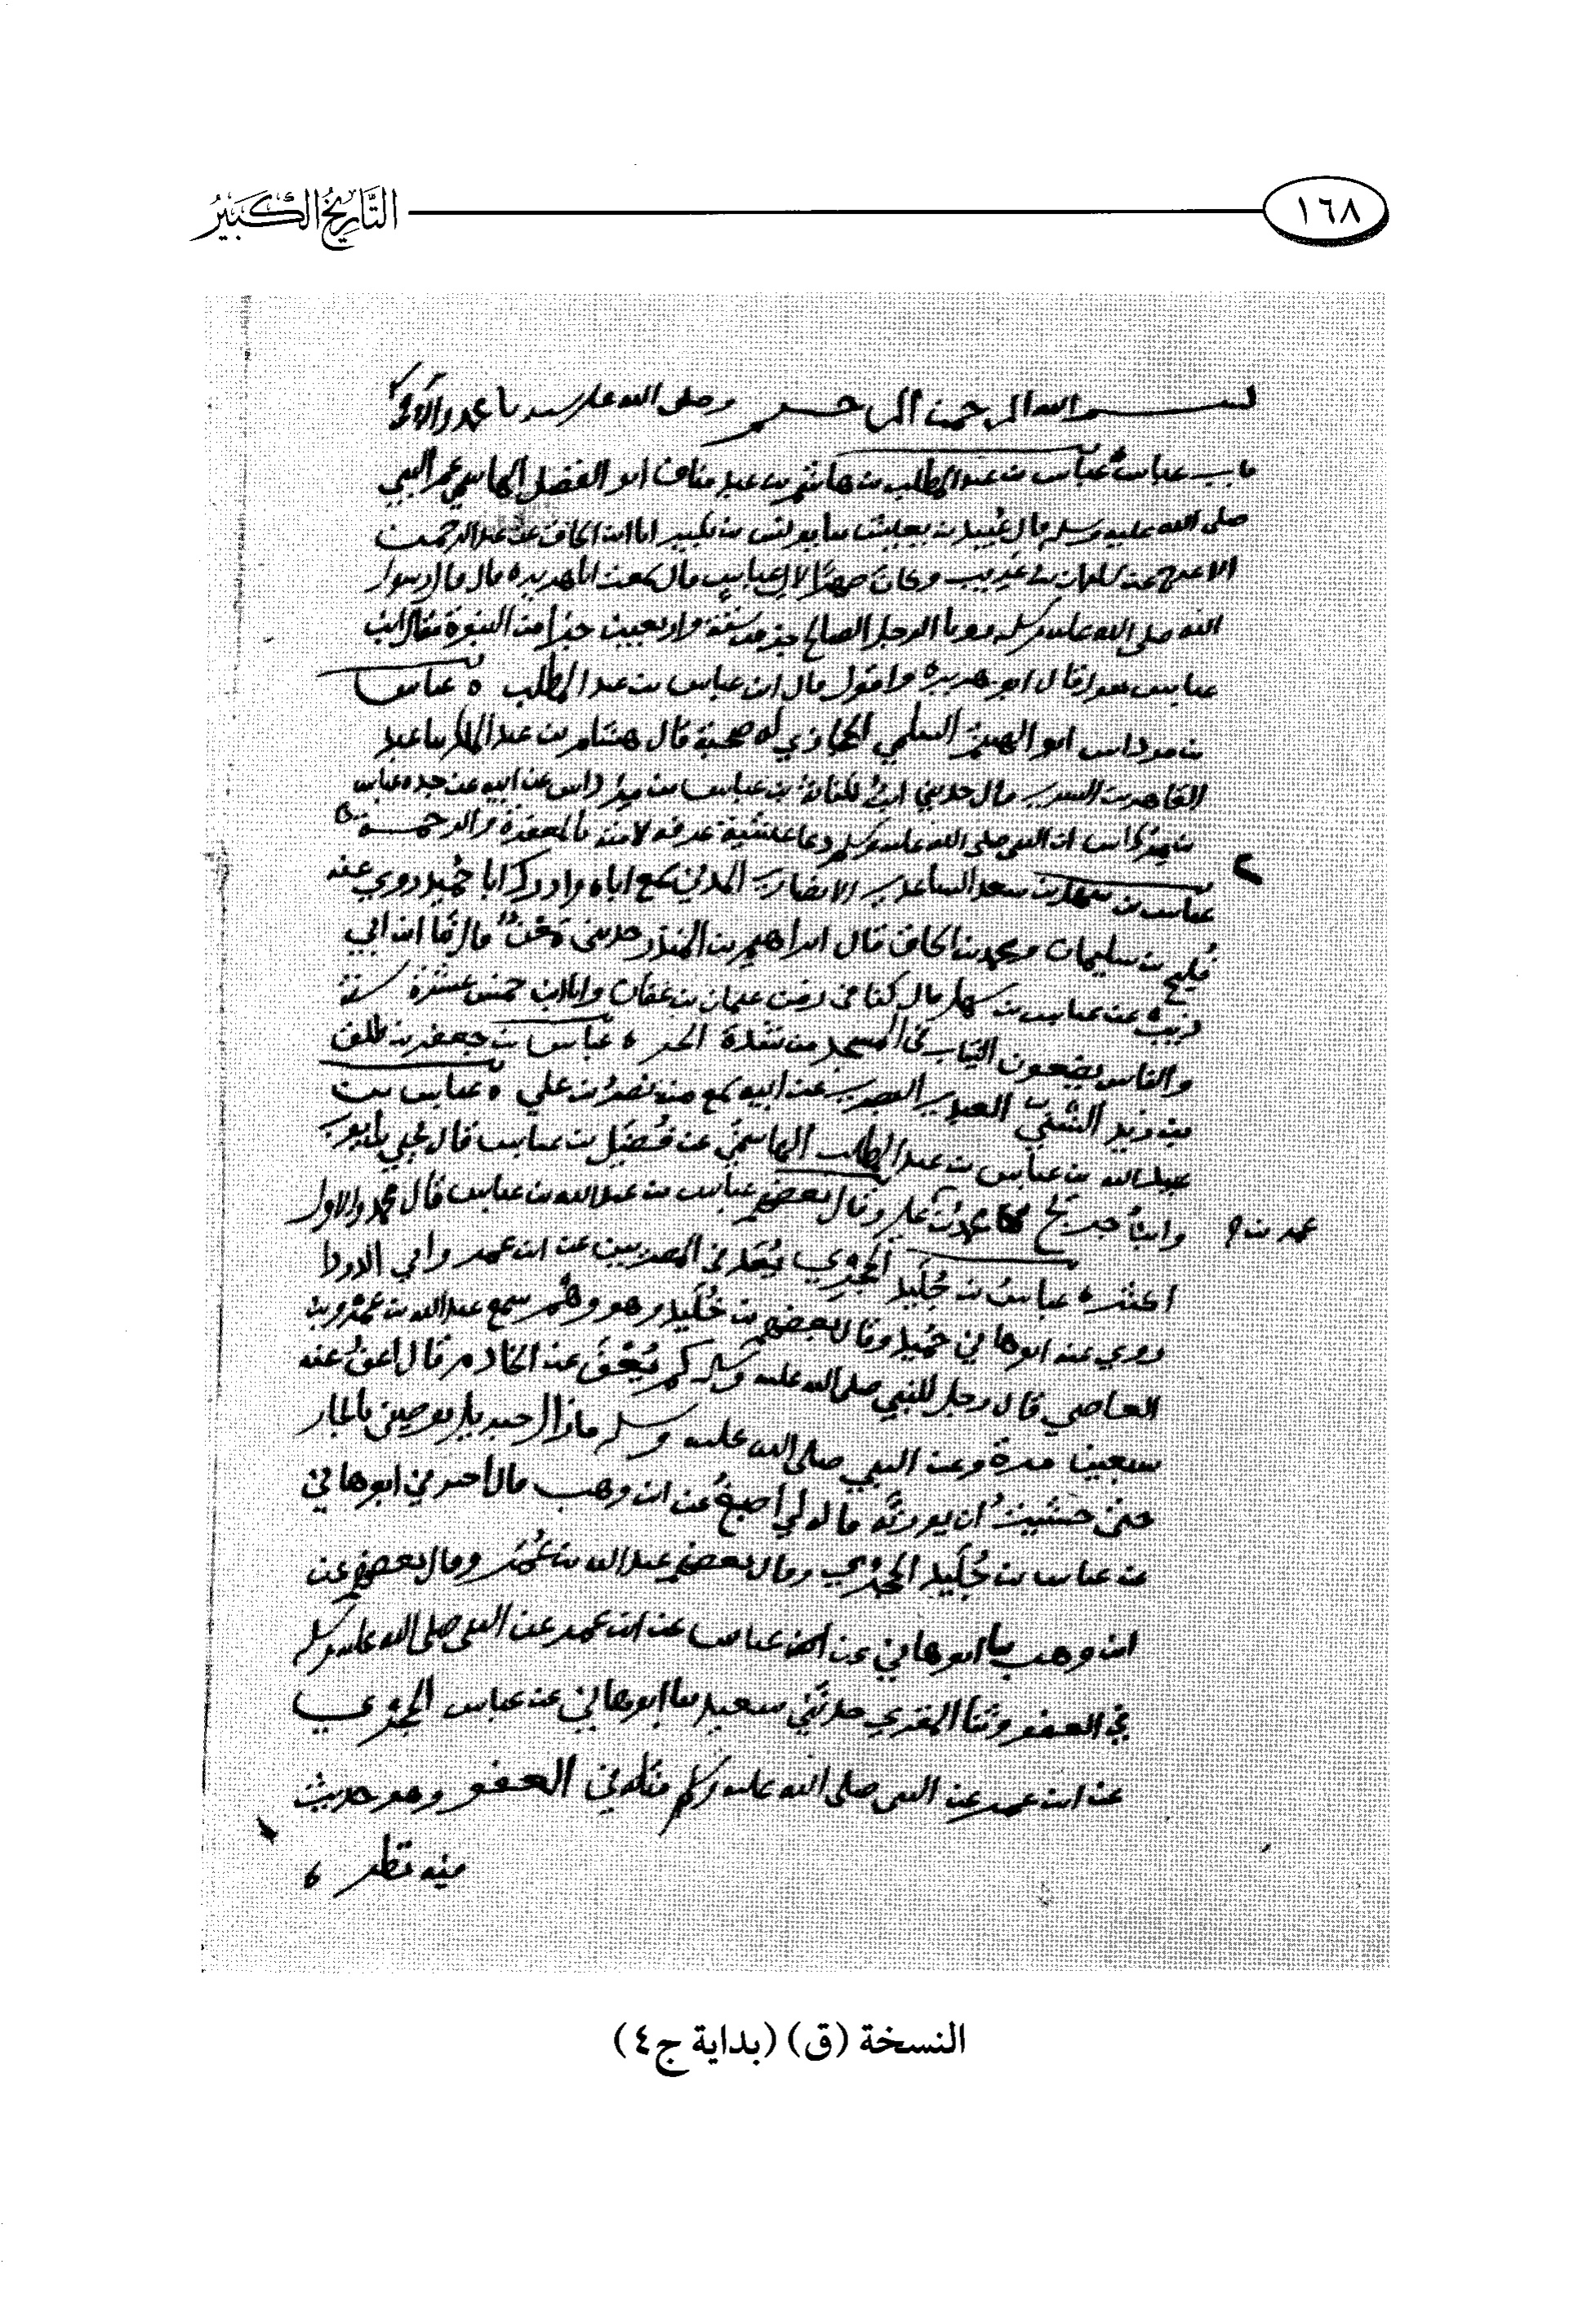 ١٦٨
التَّارِيخُ الكَبِيرُ
بسم الله الرحمن الرحيم وصلى الله على سيدنا محمد وآله
باب عباس عباس بن عبد المطلب بن هاشم بن عبد مناف ابو الفضل الهاشمي عم النبي
صلى الله عليه وسلم قال عبيد بن يعيش نا يونس بن بكير انا ابن اسحاق عن عبد الرحمن
الاعرج عن سليمان بن عريب وكان صهرا لال عباس قال سمعت ابا هريرة قال قال رسول
الله صلى الله عليه وسلم رويا الرجل الصالح جزء من ستة واربعين جزا من النبوة فقال ابن
عباس فقال ابو هريرة واقول قال ابن عباس بن عبد المطلب ه عباس
بن مرداس ابو الهيثم السلمي الحجازي له صحبة قال هشام بن عبد الملك نا عبد
القاهر بن السري قال حدثني ابن لكنانة بن عباس بن مرداس عن ابيه عن جده عباس
بن مرداس ان النبي صلى الله عليه وسلم دعا عشية عرفة لامته بالمغفرة والرحمة ه
عباس بن سهل بن سعد الساعدي الانصاري المدني سمع اباه وادرك ابا حميد روي عنه
فليح بن سليمان ومحمد بن اسحاق قال ابراهيم بن المنذر حدثني معن قال نا ابن ابي
ذيب عن عباس بن سهل قال كنا في زمن عثمان بن عفان وانا ابن خمس عشرة سنة
والناس يضعون الثياب في المسجد من شدة الحر ه عباس بن جعفر بن طلق
بن زيد الشني العبدي البصري عن ابيه سمع منه نصر بن علي ه عباس بن
عبيد الله بن عباس بن عبد المطلب الهاشمي عن فضل بن عباس قال يحيى بن ايوب
وابن جريج محمد بن عمر وقال بعضهم عباس بن عبد الله بن عباس قال محمد والاول
محمد بن
اكثر ه عباس بن جليد الحجري يعد في المصريين عن ابن عمر وابي الدردا
روي عنه ابو هاني حميد وقال بعضهم بن خليد وهو وهم سمع عبد الله بن عمرو بن
العاصي قال رجل للنبي صلى الله عليه وسلم كم يعفى عن الخادم قال اعف عنه
سبعين مرة وعن النبي صلى الله عليه وسلم مازال جبريل يوصيني بالجار
حتى خشيت ان يورثه قاله لي اصبغ عن ابن وهب قال اخبرني ابو هاني
عن عباس بن جليد الحجري وقال بعضهم عبد الله بن عمر وقال بعضهم عن
ابن وهب نا ابو هاني عن عباس عن ابن عمر عن النبي صلى الله عليه وسلم
في العفو وثنا المقري حدثني سعيد نا ابو هاني عن عباس الحجري
عن ابن عمر عن النبي صلى الله عليه وسلم مثله في العفو وهو حديث
فيه نظر ه
النسخة (ق) (بداية ج٤)